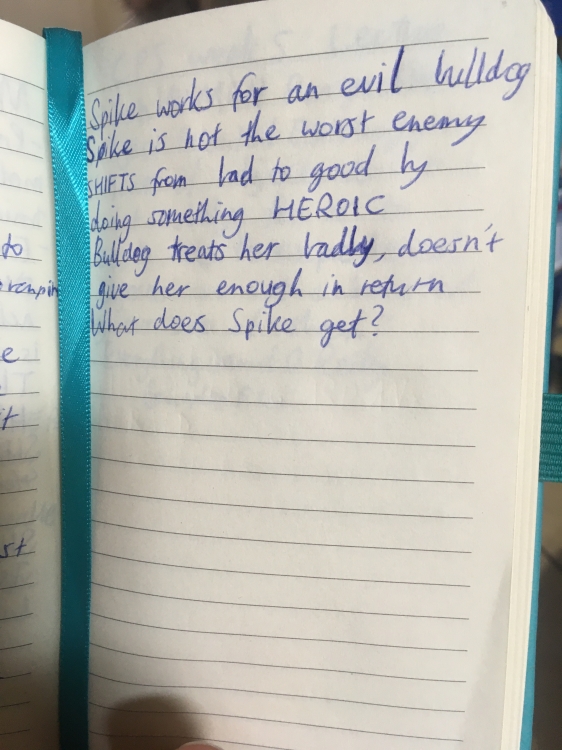 Spike works for an evil bulldog
Spike is not the worst enemy
SHIFTS from bad to good by
doing something HEROIC
Bulldog treats her badly, doesn't
give her enough in return
What does Spike get?
to
e
it
st